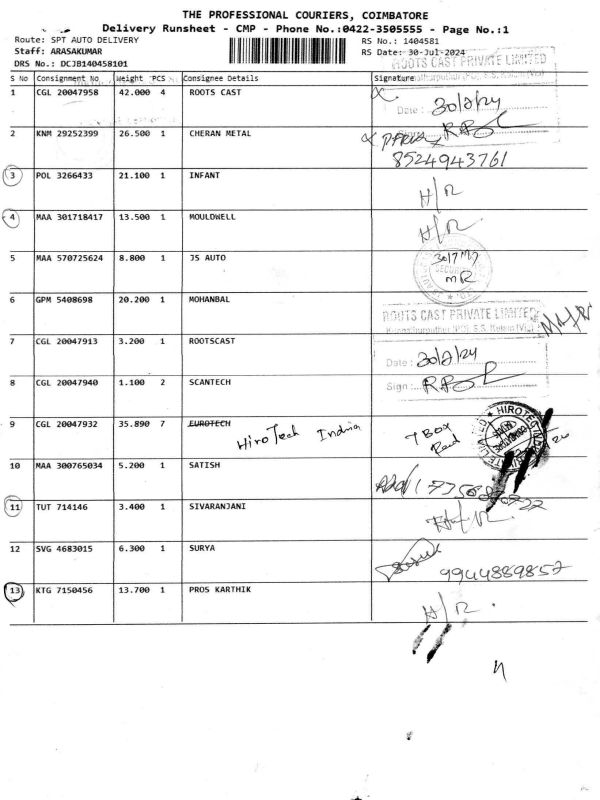 THE PROFESSIONAL COURIERS, COIMBATORE
Delivery Runsheet - CMP - Phone No.:0422-3505555 - Page No.:1
Route: SPT AUTO DELIVERY
RS No.: 1404581
Staff: ARASAKUMAR
RS Date: 30-Jul-2024
DRS No.: DCJB140458101
ROOTS CAST PRIVATE LIMITED
S No Consignment No Weight PCS Consignee Details Signature
1 CGL 20047958 42.000 4 ROOTS CAST
Date : 30/7/24
2 KNM 29252399 26.500 1 CHERAN METAL
8524943761
3 POL 3266433 21.100 1 INFANT H/R
4 MAA 301718417 13.500 1 MOULDWELL H/R
5 MAA 570725624 8.800 1 JS AUTO
MR
6 GPM 5408698 20.200 1 MOHANBAL
ROOTS CAST PRIVATE LIMITED
7 CGL 20047913 3.200 1 ROOTSCAST
Date : 30/7/24
8 CGL 20047940 1.100 2 SCANTECH
Sign :
9 CGL 20047932 35.890 7 EUROTECH
HiroTech India 7 Box
HIROTEC
10 MAA 300765034 5.200 1 SATISH
11 TUT 714146 3.400 1 SIVARANJANI
12 SVG 4683015 6.300 1 SURYA
9944889857
13 KTG 7150456 13.700 1 PROS KARTHIK H/R